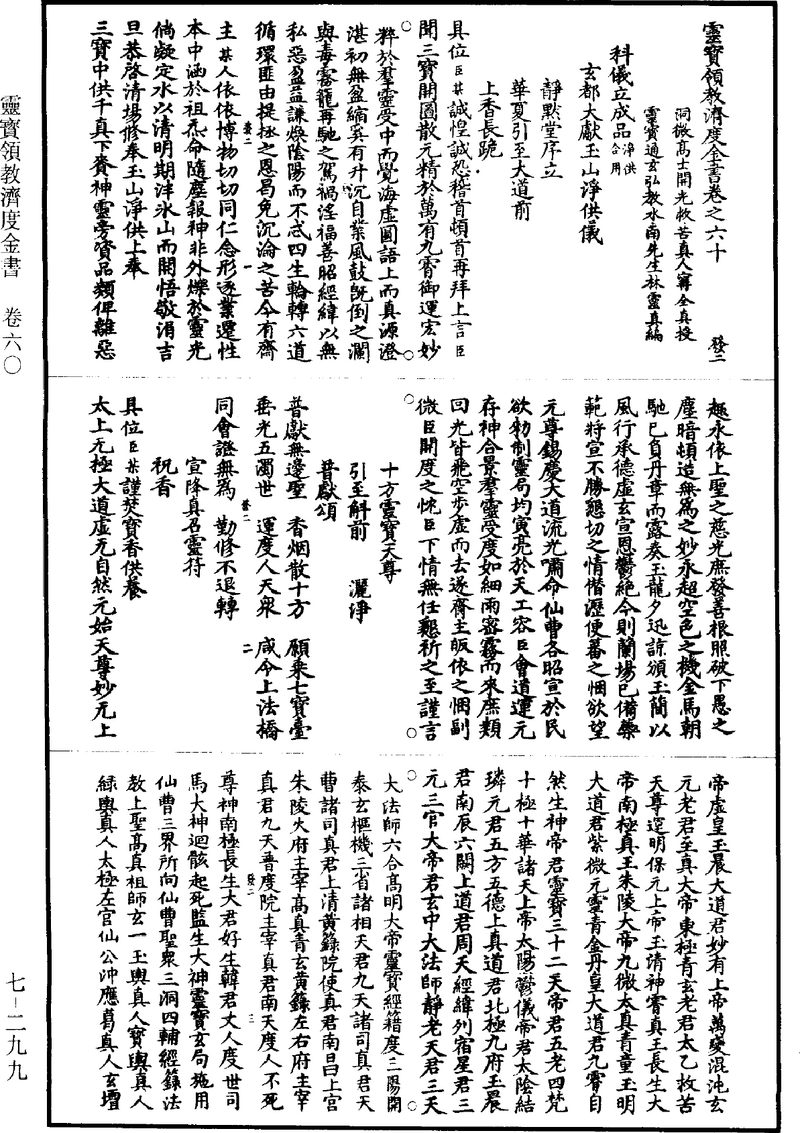 靈寶領教濟度金書卷之六十 發二
洞微高士開光救苦真人甯全真授
靈寶通玄弘教水南先生林靈真編
科儀立成品淨供合用
玄都大獻玉山淨供儀
靜默堂序立
華夏引至大道前
上香長跪
具位臣某誠惶誠恐稽首頓首再拜上言臣
聞三寶開圖散元精於萬有九霄御運宏妙
粹於羣靈受中而覺海虛圓語上而真源澄
湛初無盈縮奚有升沉自業風鼓既倒之瀾
與毒霧龍再馳之駕禍淫福善昭經緯以無
私惡盈益謙煥陰陽而不忒四生輪轉六道
循環匪由提拯之恩曷免沉淪之苦今有齋
主某人依依博物切切同仁念形逐業遷性
本中涵於祖炁命隨塵報神非外爍於靈光
倘凝定水以清明期泮氷山而開悟敬涓吉
旦恭啓清場修奉玉山淨供上奉
三寶中供千真下賚神靈旁資品類俾離惡
趣永依上聖之慈光庶發善根照破下愚之
塵暗頓造無為之妙永超空色之機金馬朝
馳已負丹章而露奏玉龍夕迅諒頒玉簡以
風行承德虛玄宣恩鬱絶今則蘭場已備蘂
範將宣不勝懇切之情僭瀝便蕃之悃欲望
元尊錫慶大道流光嘯命仙曹各昭宣於民
欲勑制靈局均寅亮於天工容臣會道運元
存神合景羣靈受度如細雨密霧而來庶類
回光皆飛空步虛而去遂齋主皈依之悃副
微臣開度之悰臣下情無任懇祈之至謹言
十方靈寶天尊
引至斛前 灑淨
普獻頌
普獻無邊聖 香烟散十方 願乘七寶臺
垂光五濁世 運度人天衆 咸令上法橋
同會證無為 勤修不退轉
宣降真召靈符
祝香
具位臣某謹焚寶香供養
太上无極大道虛无自然元始天尊妙无上
帝虛皇玉晨大道君妙有上帝萬變混沌玄
元老君至真大帝東極青玄老君太乙救苦
天尊運明保元上帝玉清神霄真王長生大
帝南極真王朱陵大帝九微太真青童玉明
大道君紫微元靈青金丹皇大道君九霄自
然生神帝君靈寶三十二天帝君五老四梵
十極十華諸天上帝太陽鬱儀帝君太陰結
璘元君五方五德上真道君北極九府玉晨
君南辰六闕上道君周天經緯列宿星君三
元三官大帝君玄中大法師靜老天君三天
大法師六合高明大帝靈寶經籍度三陽開
泰玄樞機三省諸相天君九天諸司真君天
曹諸司真君上清黃籙院使真君南昌上宮
朱陵火府主宰高真青玄黃籙左右府主宰
真君九天普度院主宰真君南天度人不死
尊神南極長生大君好生韓君丈人度世司
馬大神迴骸起死監生大神靈寶玄局施用
仙曹三界所向仙曹聖衆三洞四輔經籙法
教上聖高真祖師玄一玉輿真人寶輿真人
綠輿真人太極左官仙公沖應葛真人玄壇
靈寶領教濟度金書 卷六〇
七－二九九